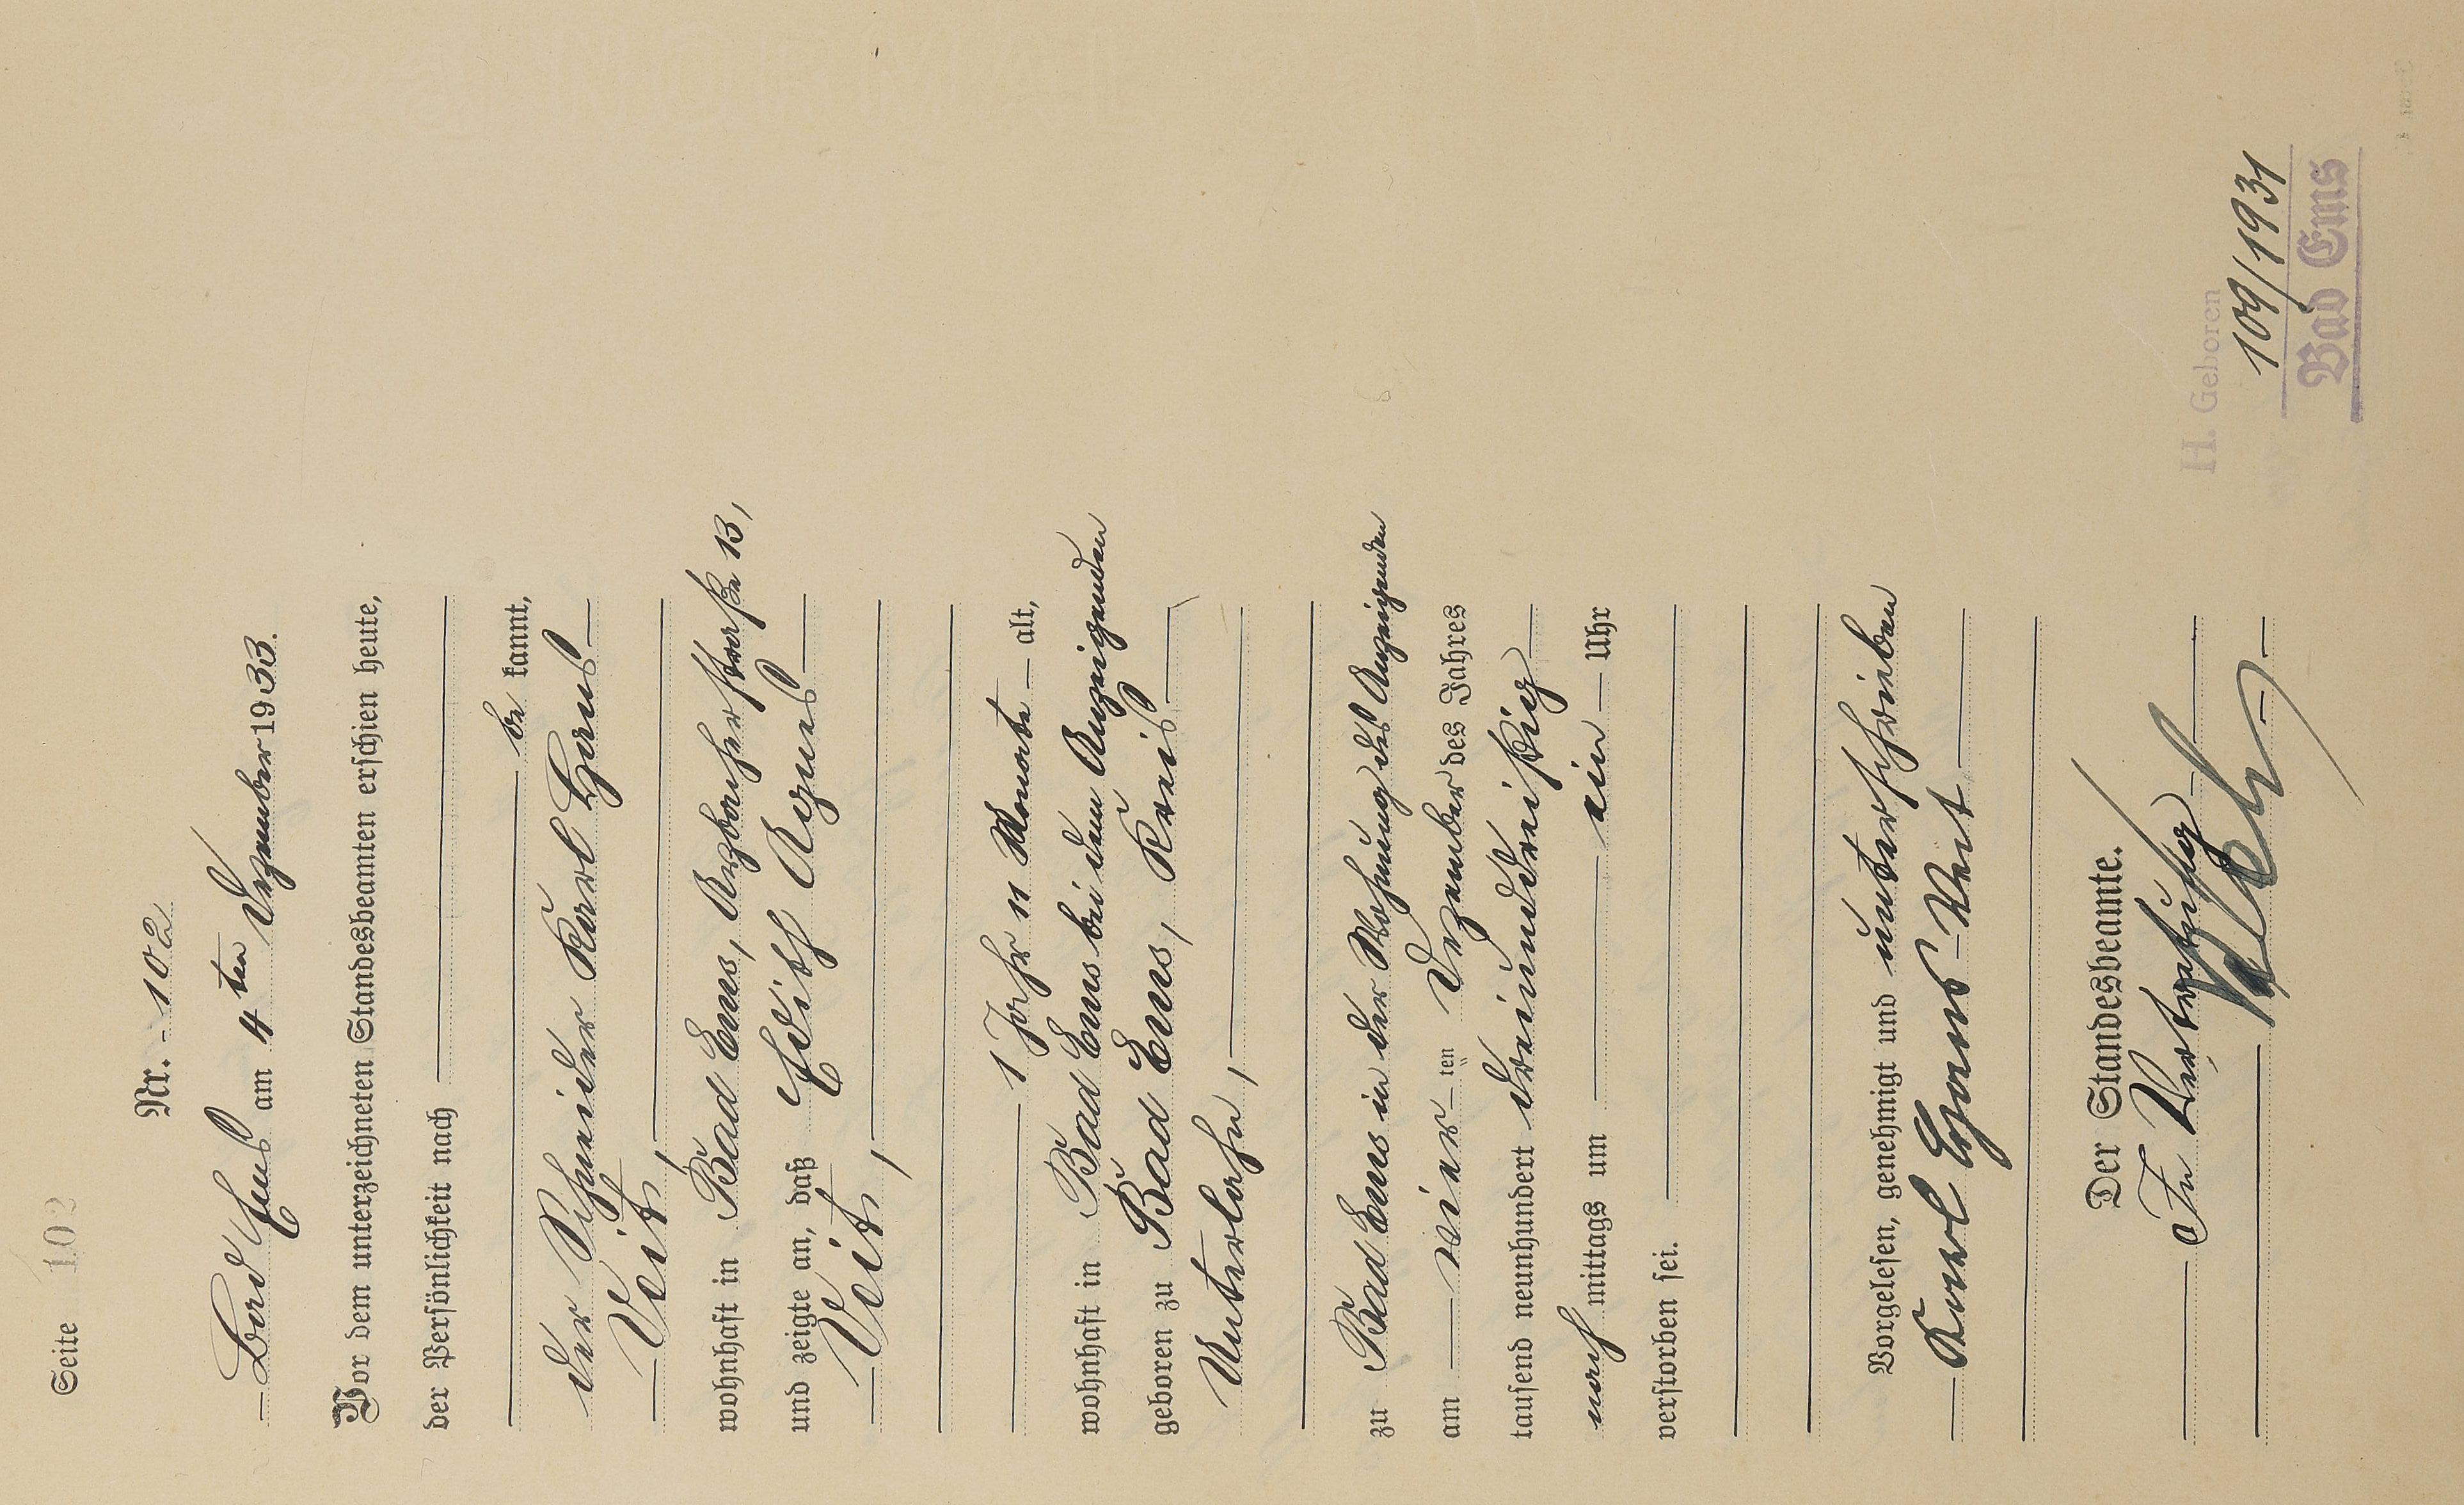 Seite 102
Nr. 102
Bad Ems am 4ten Dezember 1933.
Vor dem unterzeichneten Standesbeamten erschien heute,
der Persönlichkeit nach
be kannt,
der Schneider Karl Hans
Veit,
wohnhaft in Bad Ems, Arzbacherstraße 13,
und zeigte an, daß Edith Agnes
Veit,
1 Jahr 11 Monate alt,
wohnhaft in Bad Ems bei dem Anzeigenden
geboren zu Bad Ems, Kreis
Unterlahn,
zu Bad Ems in der Wohnung des Anzeigenden
am vier ten Dezember des Jahres
tausend neunhundert dreiunddreißig
nach mittags um ein Uhr
verstorben sei.
Vorgelesen, genehmigt und unterschrieben
Karl Hans Veit
Der Standesbeamte.
In Vertretung
H. Geboren
109/1931
Bad Ems